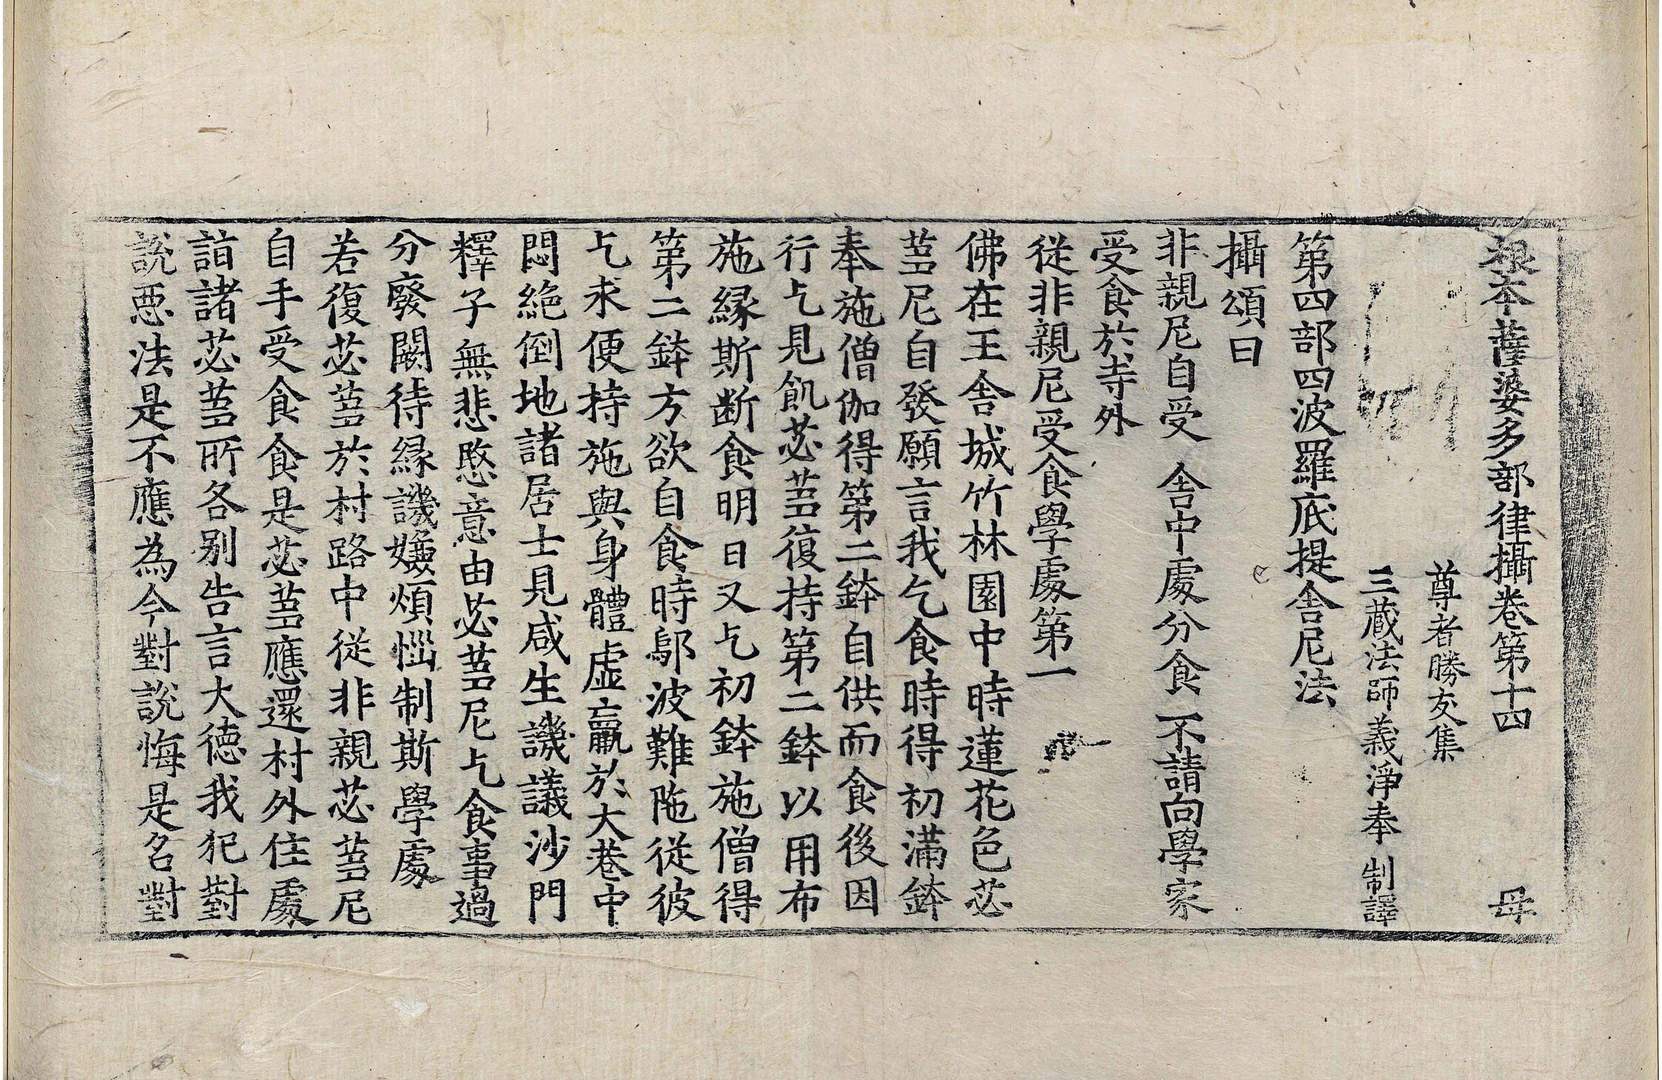 根本薩婆多部律攝卷第十四 母
尊者勝友集
三藏法師義淨奉 制譯
第四部四波羅底提舍尼法
攝頌曰
非親尼自受 舍中處分食 不請向學家
受食於寺外
從非親尼受食學處第一
佛在王舍城竹林園中時蓮花色苾
芻尼自發願言我乞食時得初滿鉢
奉施僧伽得第二鉢自供而食後因
行乞見飢苾芻復持第二鉢以用布
施緣斯断食明日又乞初鉢施僧得
第二鉢方欲自食時鄔波難陁從彼
乞求便持施與身體虛羸於大巷中
悶絕倒地諸居士見咸生譏議沙門
釋子無悲愍意由苾芻尼乞食事過
分廢闕待緣譏嫌煩惱制斯學處
若復苾芻於村路中從非親苾芻尼
自手受食食是苾芻應還村外住處
詣諸苾芻所各別告言大德我犯對
說惡法是不應為今對說悔是名對